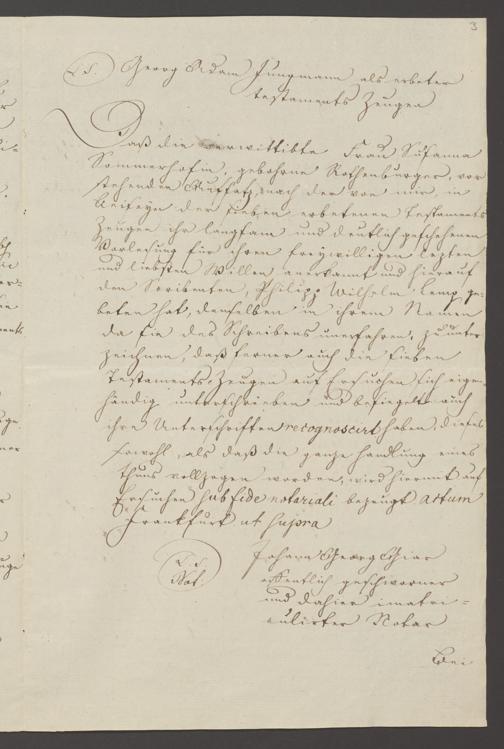 3
L.S. Georg Adam Jungmann als erbeter
testaments Zeugen
Daß die verwittibte Frau Susanna
Sommerhofin, gebohrne Rothenburger, vor
stehenden Aufsatz, nach der von mir, in
Beiseyn der sieben erbetenen Testaments
Zeugen ihr langsam und deutlich geschehenen
Vorlesung für ihren freywilligen letzten
und liebsten Willen anerkannt und hierauf
den Scribenten, Philipp Wilhelm Lemp ge-
beten hat, denselben in ihrem Namen
da sie des Schreibens unerfahren, zu unter
zeichnen, daß ferner auch die sieben
Testaments Zeugen auf Ersuchen sich eigen-
händig unterschrieben und besiegelt auch
ihre Unterschriften recognoscirt haben, dieses
sowohl, als daß die ganze Handlung eines
thuns vollzogen worden, wird hiermit auf
Ersuchen sub fide notariali bezeugt actum
Frankfurt ut supra
L.S.
Not.
Johann Georg
offentlich geschworner
und dahier imatri-
culirter Notar
Bei